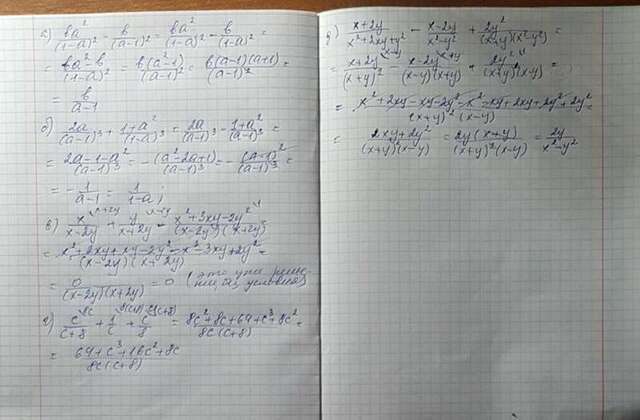 а) ba²/(1-a)² - b/(a-1)² = ba²/(1-a)² - b/(1-a)² =
= ba²-b/(1-a)² = b(a²-1)/(a-1)² = b(a-1)(a+1)/(a-1)² =
= b/a-1
б) 2a/(a-1)³ + 1+a²/(1-a)³ = 2a/(a-1)³ - 1+a²/(a-1)³ =
= 2a-1-a²/(a-1)³ = -(a²-2a+1)/(a-1)³ = -(a-1)²/(a-1)³ =
= -1/a-1 = 1/1-a;
в) x/x-2y + y/x+2y - x²+3xy-2y²/(x-2y)(x+2y) =
= x²+2xy+xy-2y²-x²-3xy+2y²/(x-2y)(x+2y) =
= 0/(x-2y)(x+2y) = 0 (это при условия)
г) c/c+8 + 1/c + c/8 = 8c²+8c+64+c³+8c²/8c(c+8) =
= 64+c³+16c²+8c/8c(c+8)
д) x+2y/x²+2xy+y² - x-2y/x²-y² + 2y²/(x+y)(x²-y²) =
= x+2y/(x+y)² - x-2y/(x-y)(x+y) + 2y²/(x+y)²(x-y) =
= x²+2xy-xy-2y²-x²-xy+2xy+2y²+2y²/(x+y)²(x-y) =
= 2xy+2y²/(x+y)²(x-y) = 2y(x+y)/(x+y)²(x-y) = 2y/x²-y²